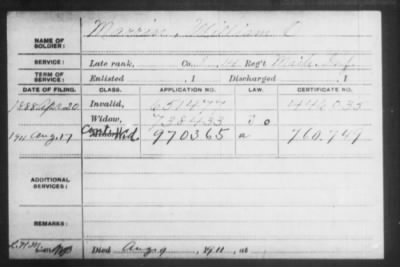 NAME OF SOLDIER: , William C
SERVICE: Late rank, Co. Reg't Mich. Inf.
TERM OF SERVICE: Enlisted , 1 Discharged , 1
DATE OF FILING. CLASS. APPLICATION NO. LAW. CERTIFICATE NO.
1888 Apr. 20 Invalid, 651477 446,535
Widow, 738433 3 o
1911 Aug. 17 Cont Wid. 970365 a 760.749
ADDITIONAL SERVICES:
REMARKS:
Died Aug 9, 1911, at